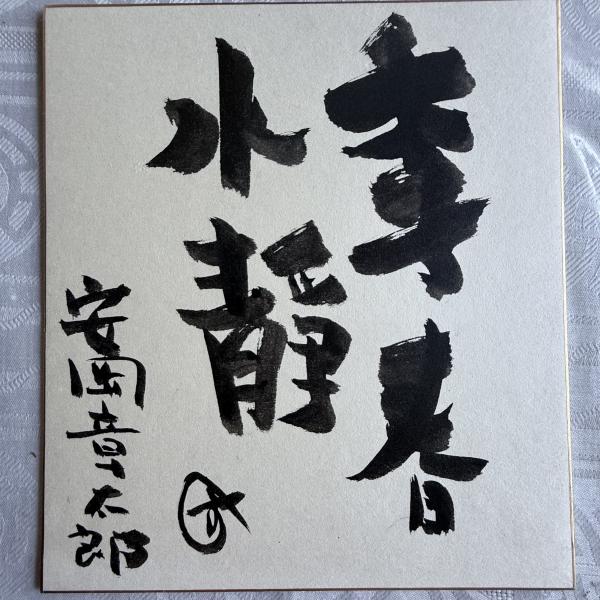 季春
水静
安岡章太郎